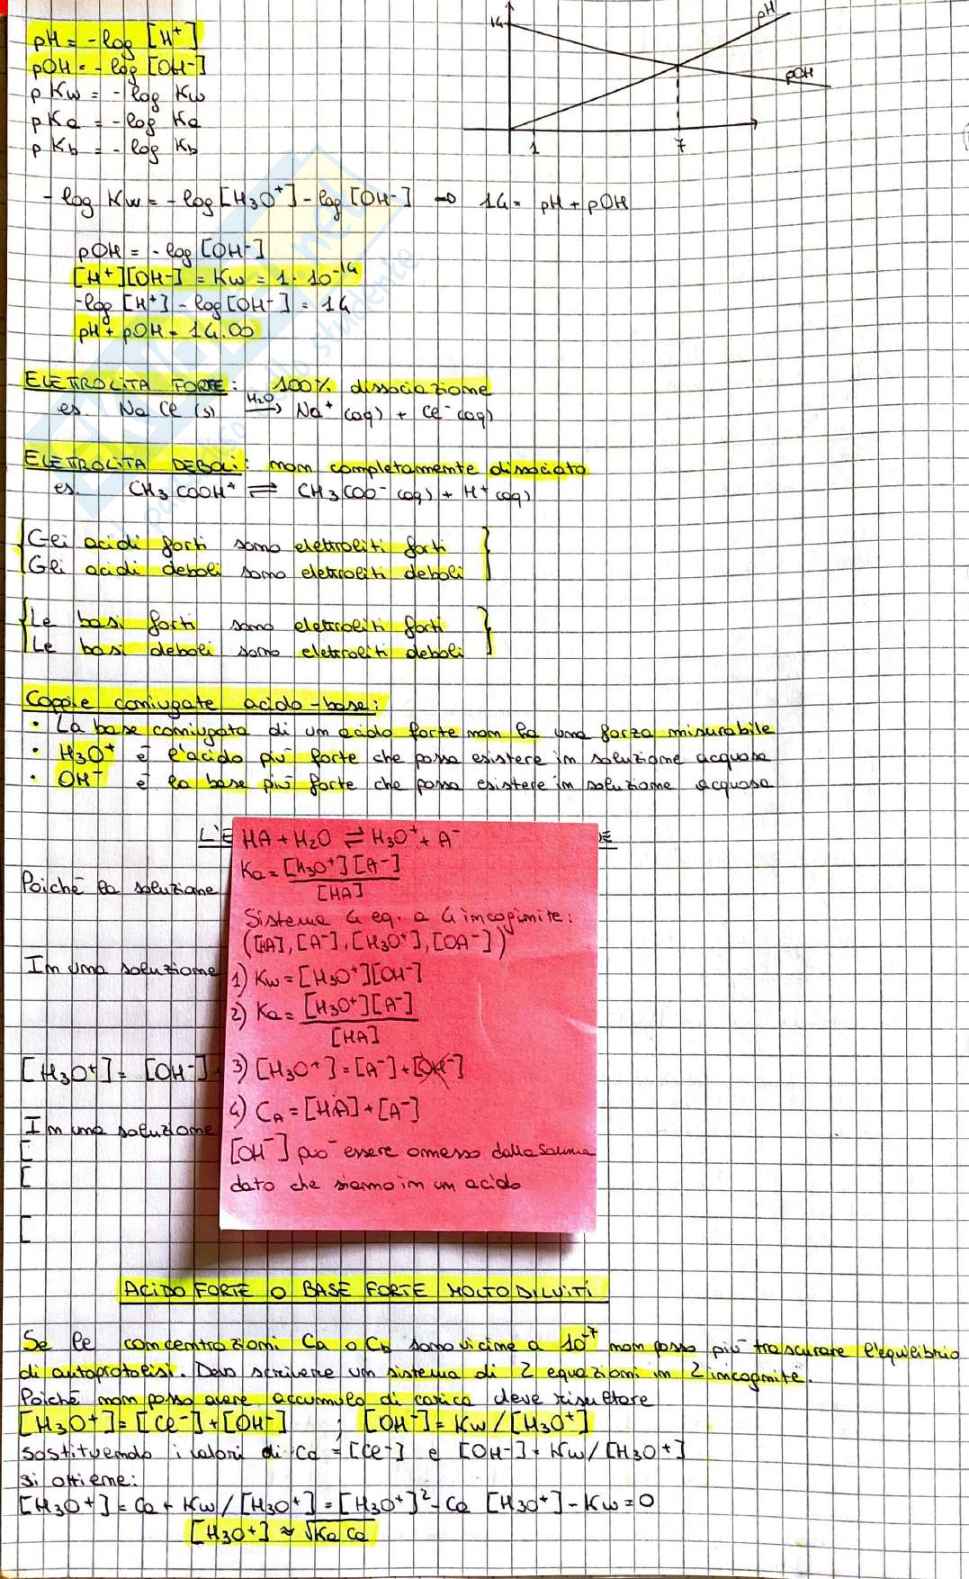 pH = -log [H⁺]
pOH = -log [OH⁻]
pKw = -log Kw
pKa = -log Ka
pKb = -log Kb
14
pH
pOH
1
7
-log Kw = -log[H₃O⁺] - log[OH⁻] ⇒ 14 = pH + pOH
pOH = -log [OH⁻]
[H⁺][OH⁻] = Kw = 1·10⁻¹⁴
-log [H⁺] - log[OH⁻] = 14
pH + pOH = 14.00
ELETROLITA FORTE: 100% dissociazione
es. NaCl (s) H₂O→ Na⁺ (aq) + Cl⁻ (aq)
ELETROLITA DEBOLI: non completamente dissociato
es. CH₃COOH⁺ ⇌ CH₃COO⁻ (aq) + H⁺ (aq)
{Gli acidi forti sono elettroliti forti}
{Gli acidi deboli sono elettroliti deboli}
{Le basi forti sono elettroliti forti}
{Le basi deboli sono elettroliti deboli}
Coppie coniugate acido-base:
• La base coniugata di un acido forte non ha una forza misurabile
• H₃O⁺ è l'acido più forte che possa esistere in soluzione acquosa
• OH⁻ è la base più forte che possa esistere in soluzione acquosa
L'E
Poiché la soluzione
In una soluzione
[H₃O⁺] = [OH⁻]
In una soluzione
[
[
[
HA + H₂O ⇌ H₃O⁺ + A⁻
Ka = [H₃O⁺][A⁻] / [HA]
Sistema 4 eq. a 4 incognite:
([HA], [A⁻], [H₃O⁺], [OA⁻])
1) Kw = [H₃O⁺][OH⁻]
2) Ka = [H₃O⁺][A⁻] / [HA]
3) [H₃O⁺] = [A⁻] + [OH⁻]
4) CA = [HA] + [A⁻]
[OH⁻] può essere omesso dalla somma
dato che siamo in un acido
ACIDO FORTE O BASE FORTE MOLTO DILUITI
Se le concentrazioni Ca o Cb sono vicine a 10⁻⁷ non posso più trascurare l'equilibrio
di autoprotolisi. Devo scrivere un sistema di 2 equazioni in 2 incognite.
Poiché non posso avere accumulo di carica deve risultare
[H₃O⁺] = [Cl⁻] + [OH⁻] ; [OH⁻] = Kw / [H₃O⁺]
sostituendo i valori di Ca = [Cl⁻] e [OH⁻] = Kw / [H₃O⁺]
si ottiene:
[H₃O⁺] = Ca + Kw / [H₃O⁺] = [H₃O⁺]² - Ca [H₃O⁺] - Kw = 0
[H₃O⁺] ≈ √Ka Ca